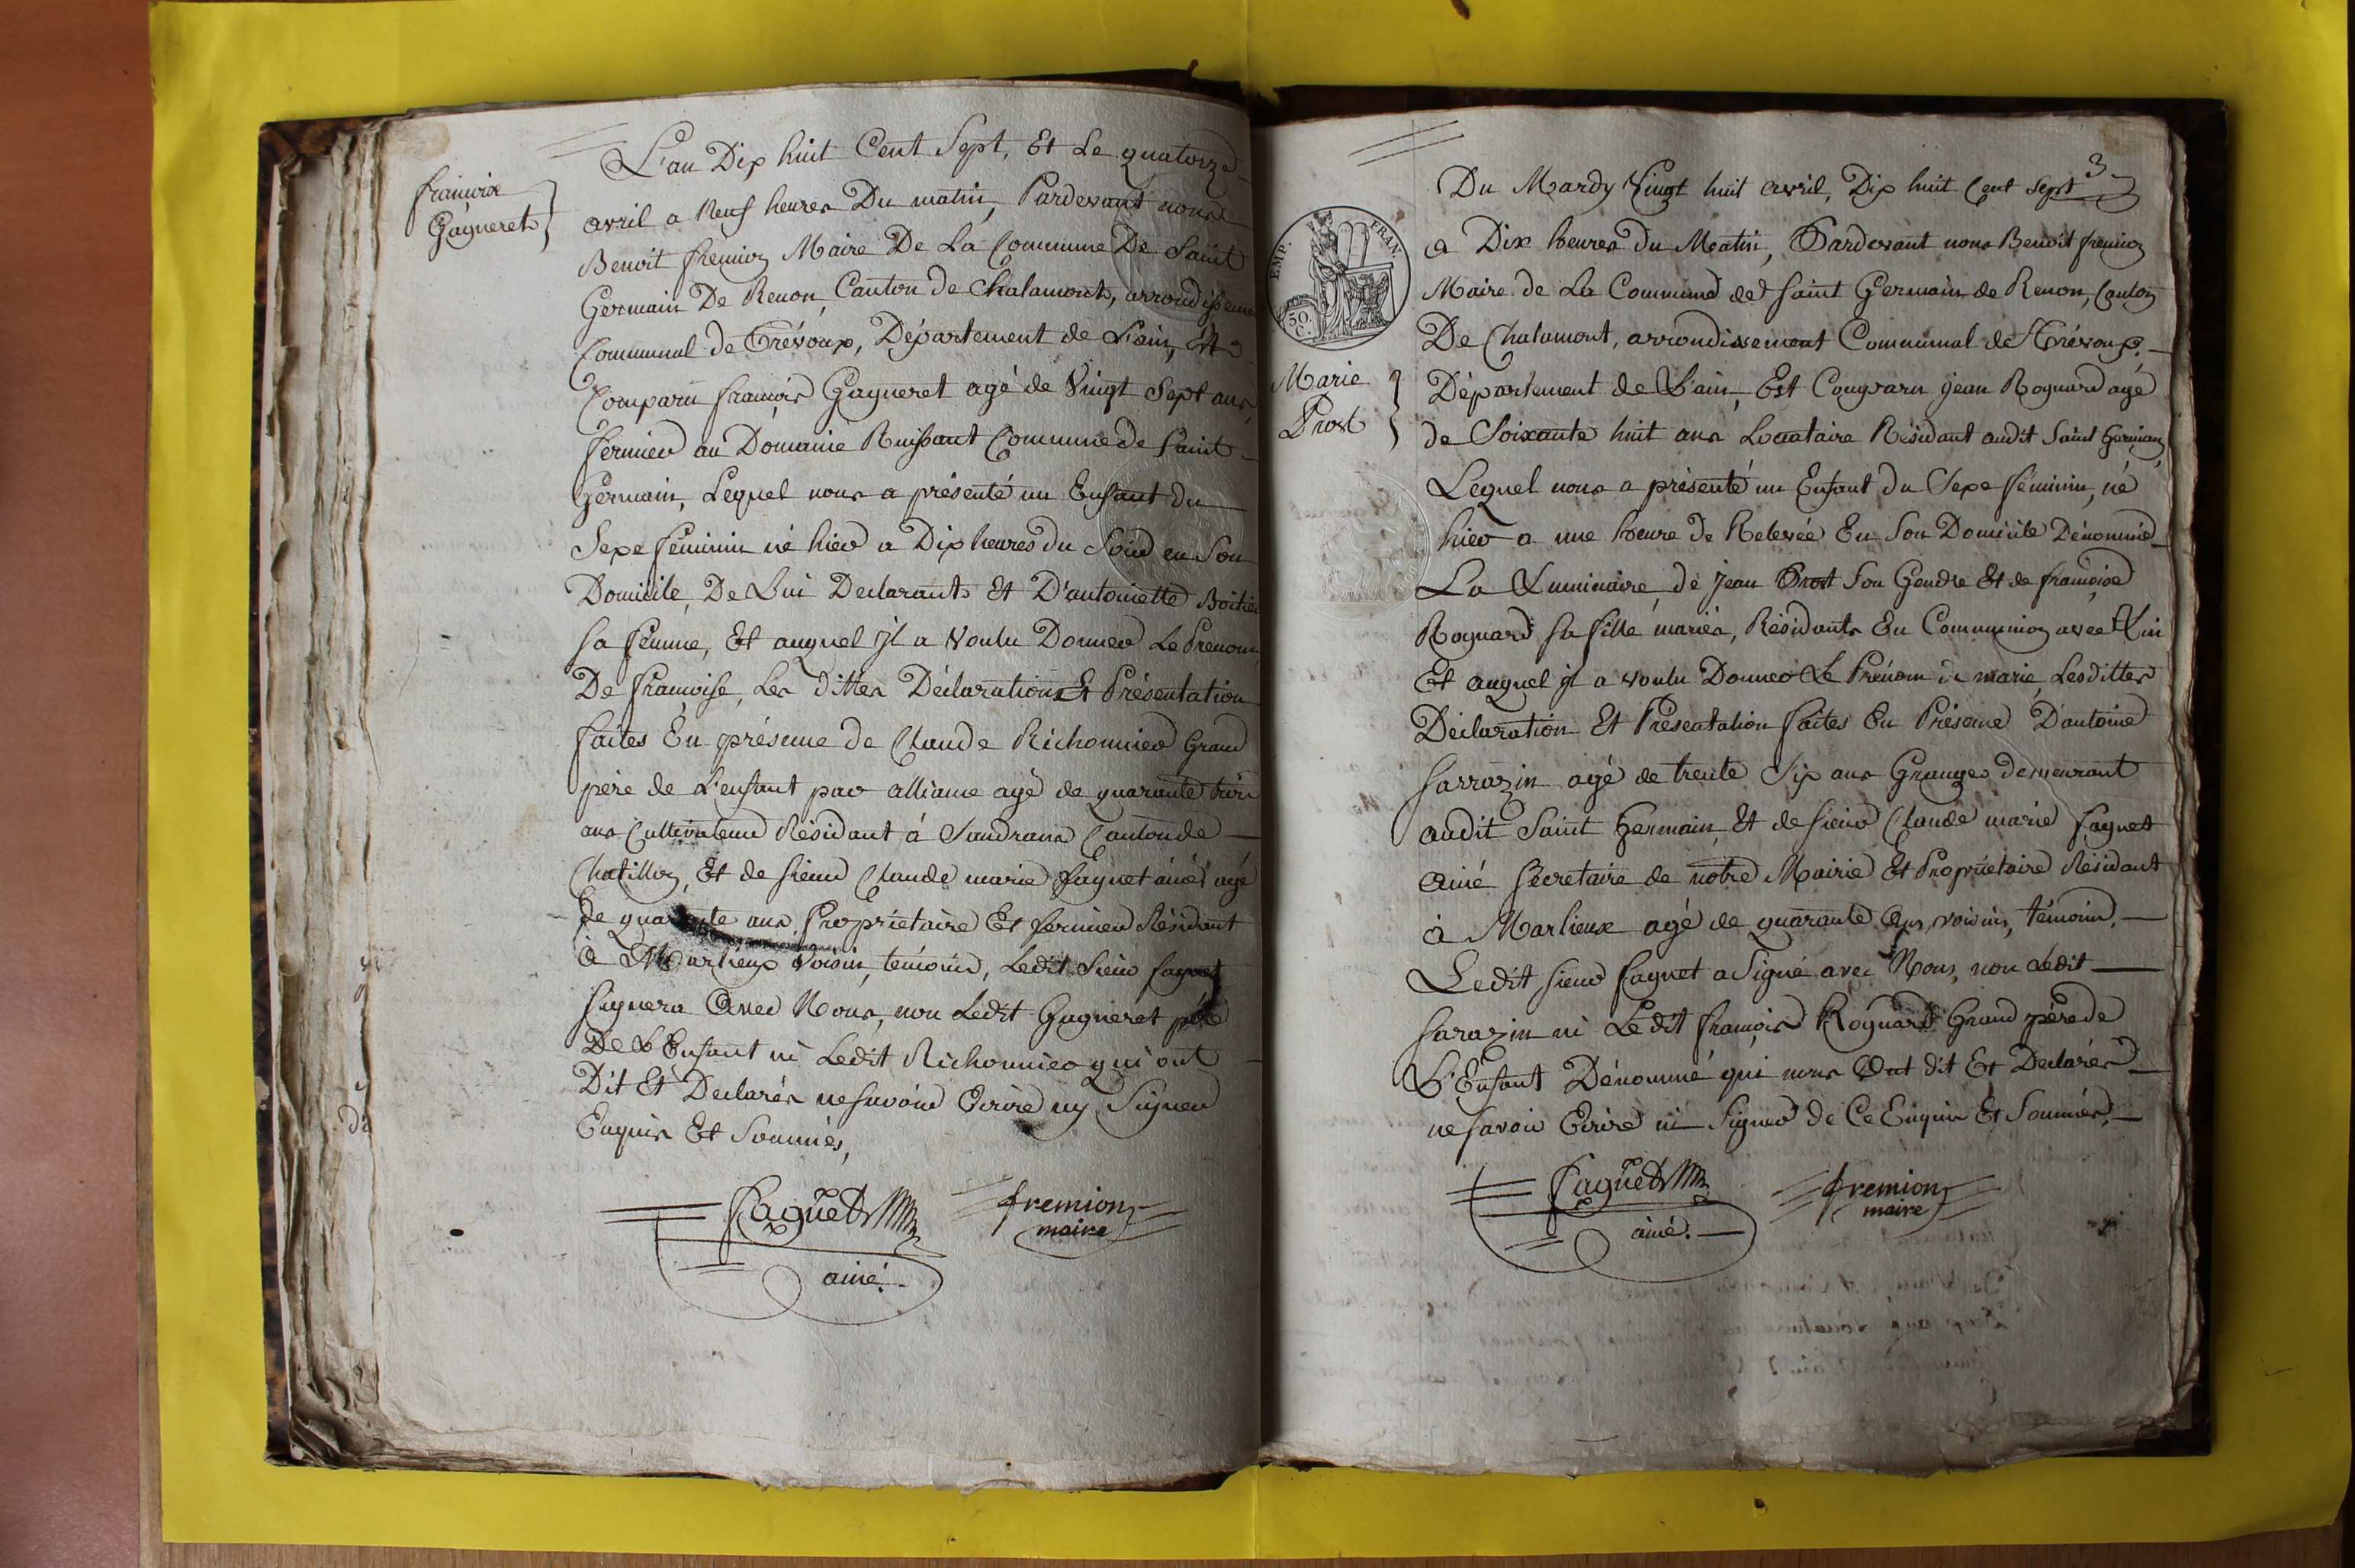 françoise
Gagneret
L'an Dix huit Cent Sept, Et Le quatorze
avril a Neuf heures Du matin, Pardevant nous
Benoit fremion Maire De La Commune De Saint
Germain De Renon, Canton de Chalamont, arrondissement
Communal de Trévoux, Département de L'ain, Est
Comparu françois Gagneret agé de Vingt Sept ans
fermier au Domaine Ruissant Commune de Saint
Germain, Lequel nous a présenté un Enfant du
Sexe féminin né hier a Dix heures du Soir en Son
Domicile, De Lui Declarant Et D'antoinette
sa femme, Et auquel jl a voulu Donner Le Prenom
De françoise, Les dittes Déclaration Et Présentation
faites En présence de Claude Richonnier Grand
père de L'enfant par alliance agé de quarante trois
ans Cultivateur Résidant à Sandrans Canton de
Chatillon, Et de sieur Claude marie faguet ainé agé
de quarante ans, Proprietaire Et fermier Résidant
à Marlieux voisin, témoins, Ledit Sieur faguet
signera Avec Nous, non Ledit Gagneret père
De L'Enfant ni Ledit Richonnier qui ont
Dit Et Declarés ne savoir Ecrire ny Signer
Enquis Et Sommés,
faguet
ainé.
fremion
maire
3
Du Mardy Vingt huit avril, Dix huit Cent Sept
EMP. FRAN.
50
C.
Marie
Prost
a Dix heures du Matin, Pardevant nous Benoit fremion
Maire de La Commune de Saint Germain de Renon, Canton
De Chalamont, arrondissement Communal de Trévoux,
Département de L'ain, Est Comparu jean Rognard agé
de Soixante huit ans Locataire Résidant audit Saint Germain,
Lequel nous a présenté un Enfant du Sexe féminin, né
hier a une heure de Relevée En Son Domicile Dénommé
La Luminaire, de jean Prost Son Gendre Et de françoise
Rognard sa fille mariés, Résidants En Communion avec Lui
Et auquel jl a voulu Donner Le Prénom de marie, Lesdittes
Déclaration Et Présentation faites En Présence D'antoine
sarrazin agé de trente Six ans Granger demeurant
audit Saint Germain, Et de sieur Claude marie faguet
ainé Secretaire de notre Mairie Et Proprietaire Résidant
à Marlieux agé de quarante ans, voisins, témoins,
Ledit sieur faguet a Signé avec Nous, non Ledit
sarazin ni Ledit françois Rognard Grand père de
L'Enfant Dénommé qui nous Ont dit Et Declarés
ne savoir Ecrire ni Signer de Ce Enquis Et Sommés,
faguet
ainé.
fremion
maire